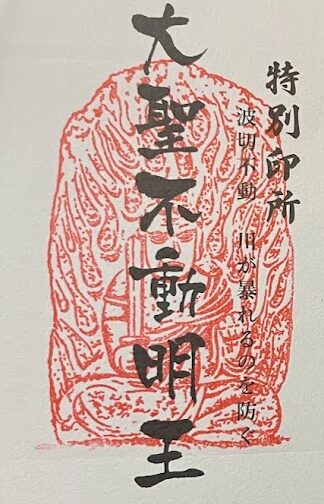 特別印所
波切不動 川が暴れるのを防ぐ
大聖不動明王